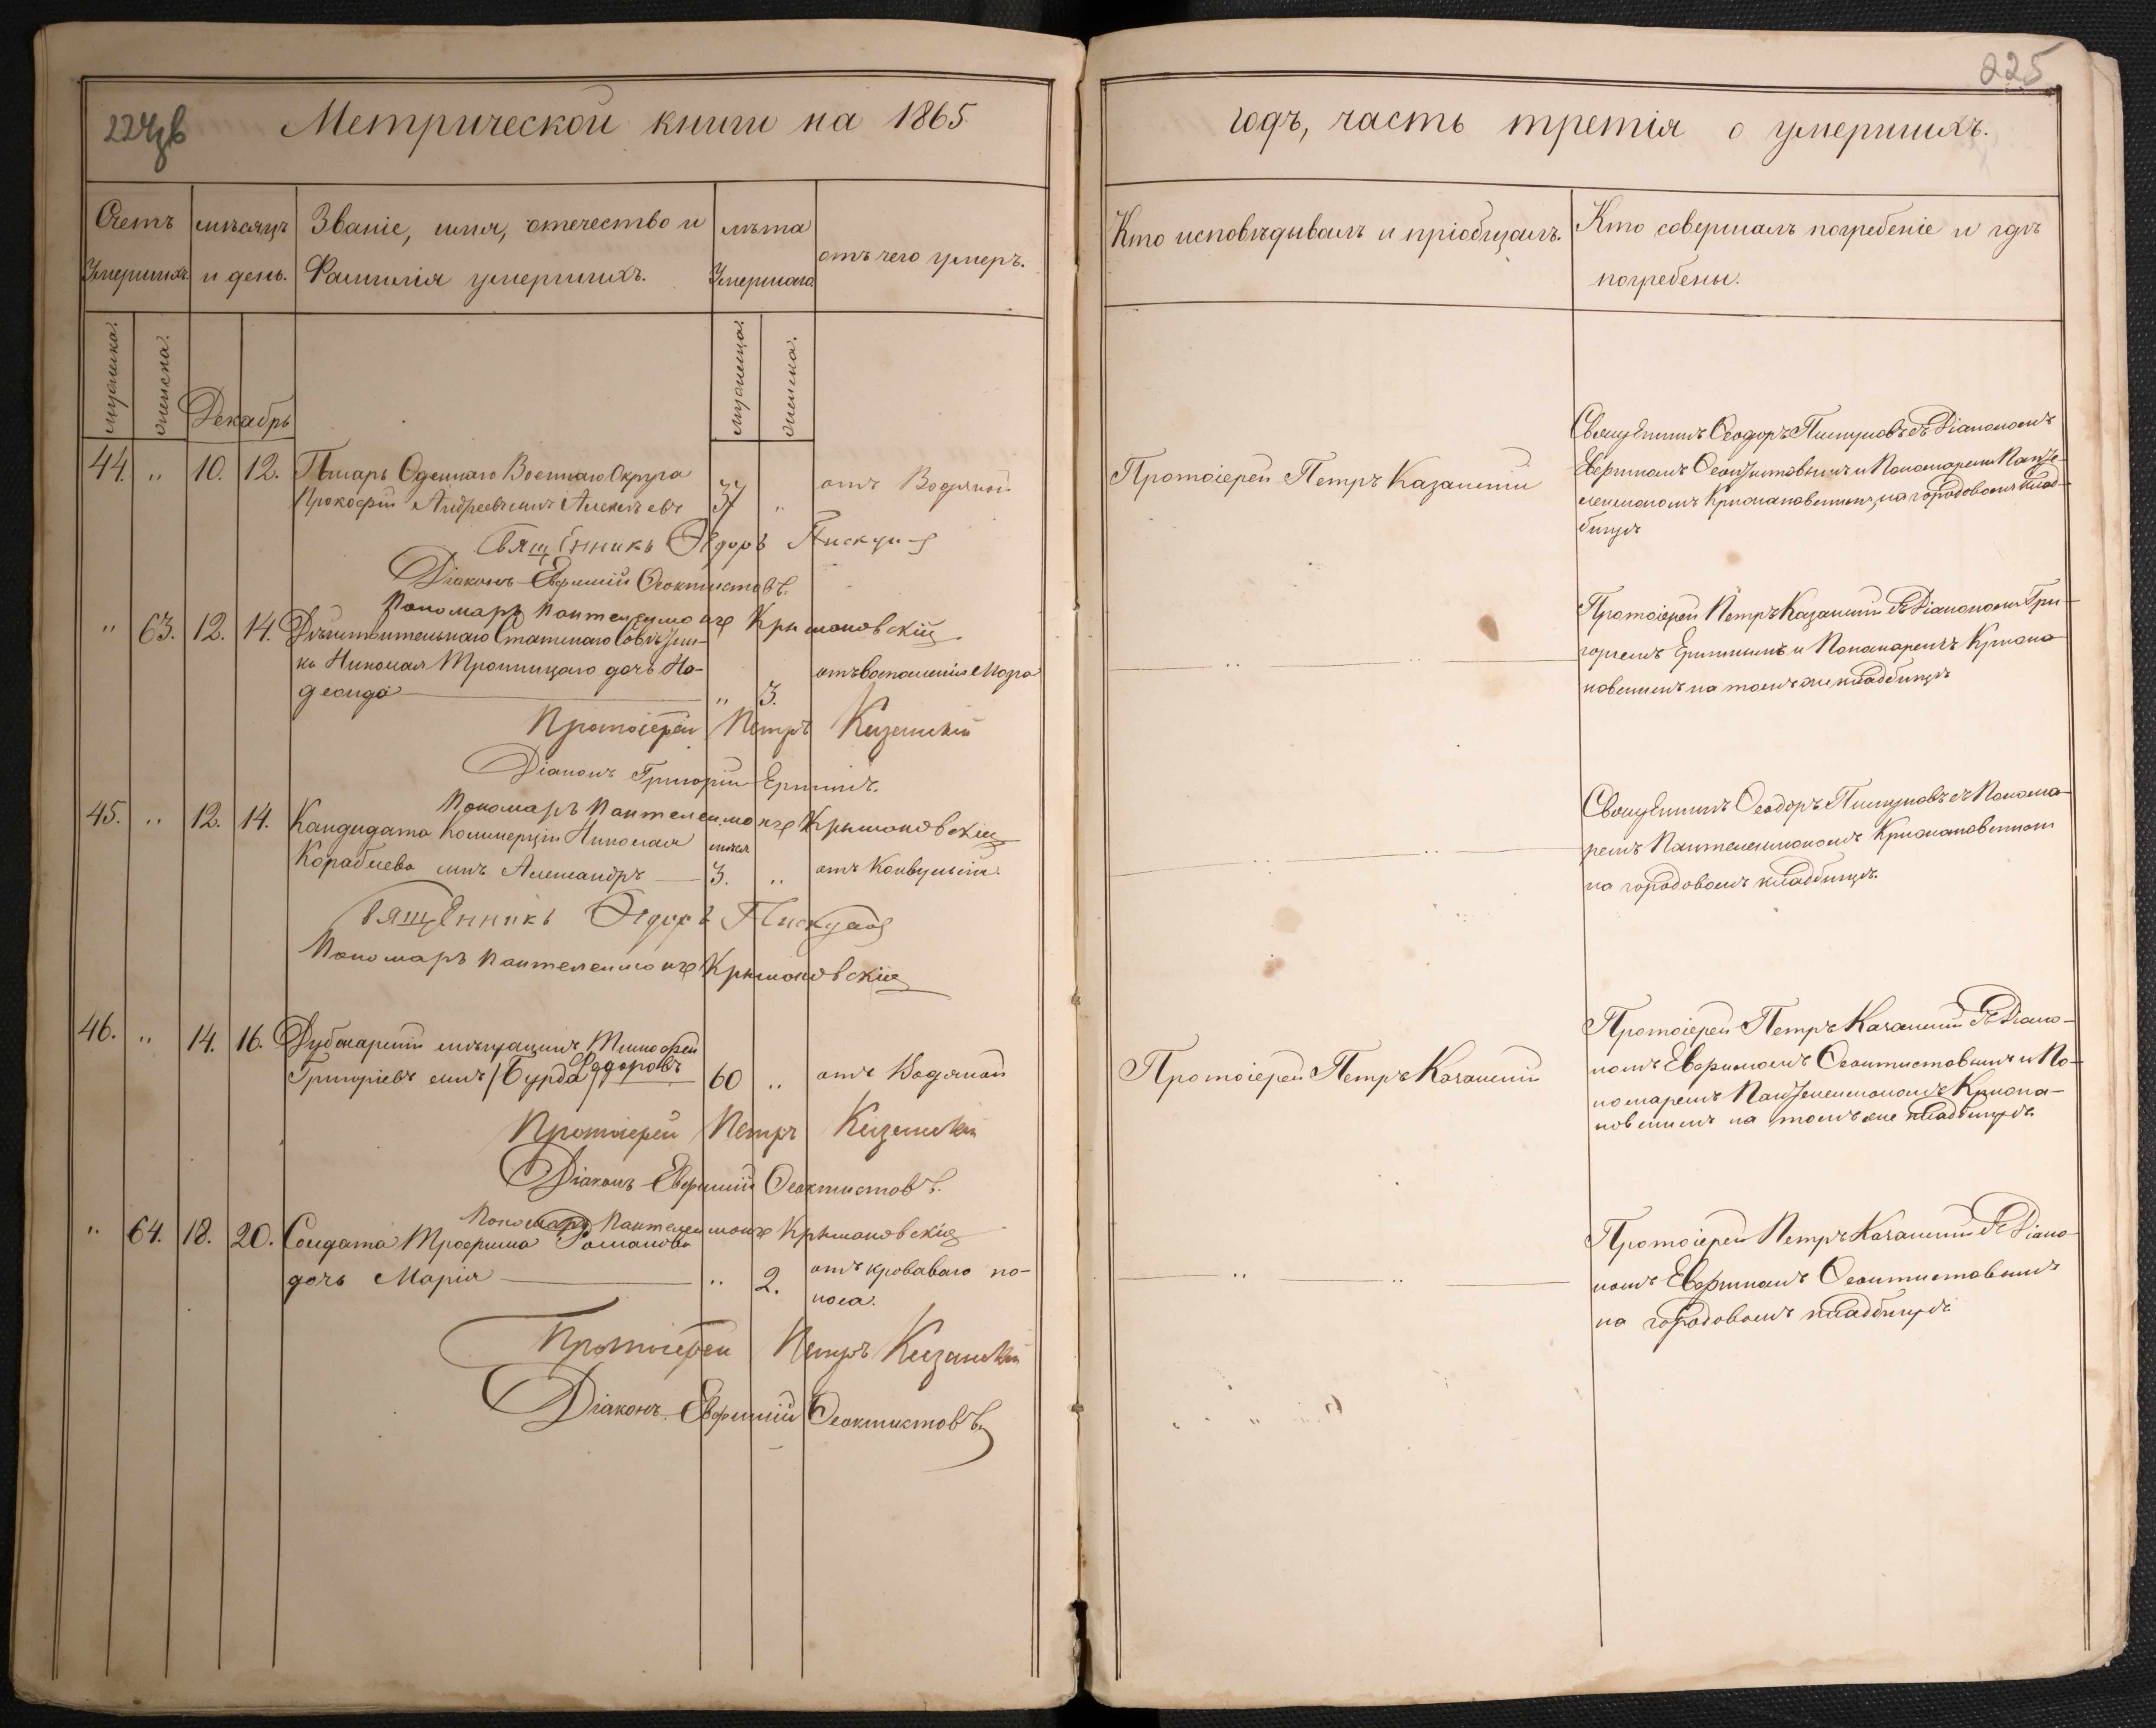 225
Метрической книги на 1865
годъ, часть третія о умершихъ.
Счетъ
Умершихъ
мѣсяцъ
и день.
Званіе, имя, отечество и
Фамилія умершихъ.
лѣта
Умершаго
отъ чего умеръ.
Кто исповѣдывалъ и пріобщалъ.
Кто совершалъ погребеніе и гдѣ
погребены.
мужеска.
женска.
Декабрь
мужеска.
женска.
44. „ 10. 12. Писарь Одескаго Военнаго Округа
Прокофій Андреевъ сынъ Алексѣевъ 37 „ отъ Водяной
Протоіерей Петръ Казанскій
Священникъ Ѳеодоръ Пискуновъ съ Діакономъ
Евфиміемъ Ѳеоктистовымъ и Пономаремъ Панте-
леимономъ Крыжановскимъ, на городовомъ клад-
бищѣ
Священникъ Ѳедоръ Пискуновъ
Діаконъ Евфимій Ѳеоктистовъ.
Пономарь Пантелеимонъ Крыжановскій
„ 63. 12. 14. Дѣйствительнаго Статскаго Совѣтни-
ка Николая Тройницкаго дочь На-
дежда „ 3. отъ воспаленія мозга
Протоіерей Петръ Казанскій съ Діакономъ Гри-
горіемъ и Пономаремъ Крыжа
новскимъ на томъ же кладбищѣ
Протоіерей Петръ Казанскій
Діаконъ Григорій
Пономарь Пантелеимонъ Крыжановскій
45. „ 12. 14. Кандидата Коммерціи Николая
Кораблева сынъ Александръ 3. „ отъ Конвульсій.
Священникъ Ѳеодоръ Пискуновъ съ Понома-
ремъ Пантелеимономъ Крыжановскимъ
на городовомъ кладбищѣ.
Священникъ Ѳедоръ Пискуновъ
Пономарь Пантелеимонъ Крыжановскій
46. „ 14. 16. Дубосарскій мѣщанинъ Тимофей
Григоріевъ сынъ /Бурда/ Федоровъ 60 „ отъ Водяной
Протоіерей Петръ Казанскій
Протоіерей Петръ Казанскій съ Діако-
номъ Евфиміемъ Ѳеоктистовымъ и По-
номаремъ Пантелеимономъ Крыжа-
новскимъ на томъ же кладбищѣ
Протоіерей Петръ Казанскій
Діаконъ Евфимій Ѳеоктистовъ.
Пономарь Пантелеимонъ Крыжановскій
„ 64. 18. 20. Солдата Трофима Романова
дочь Марія „ 2. отъ кроваваго по-
носа.
Протоіерей Петръ Казанскій съ Діако-
номъ Евфиміемъ Ѳеоктистовымъ
на городовомъ кладбищѣ
Протоіерей Петръ Казанскій
Діаконъ Евфимій Ѳеоктистовъ